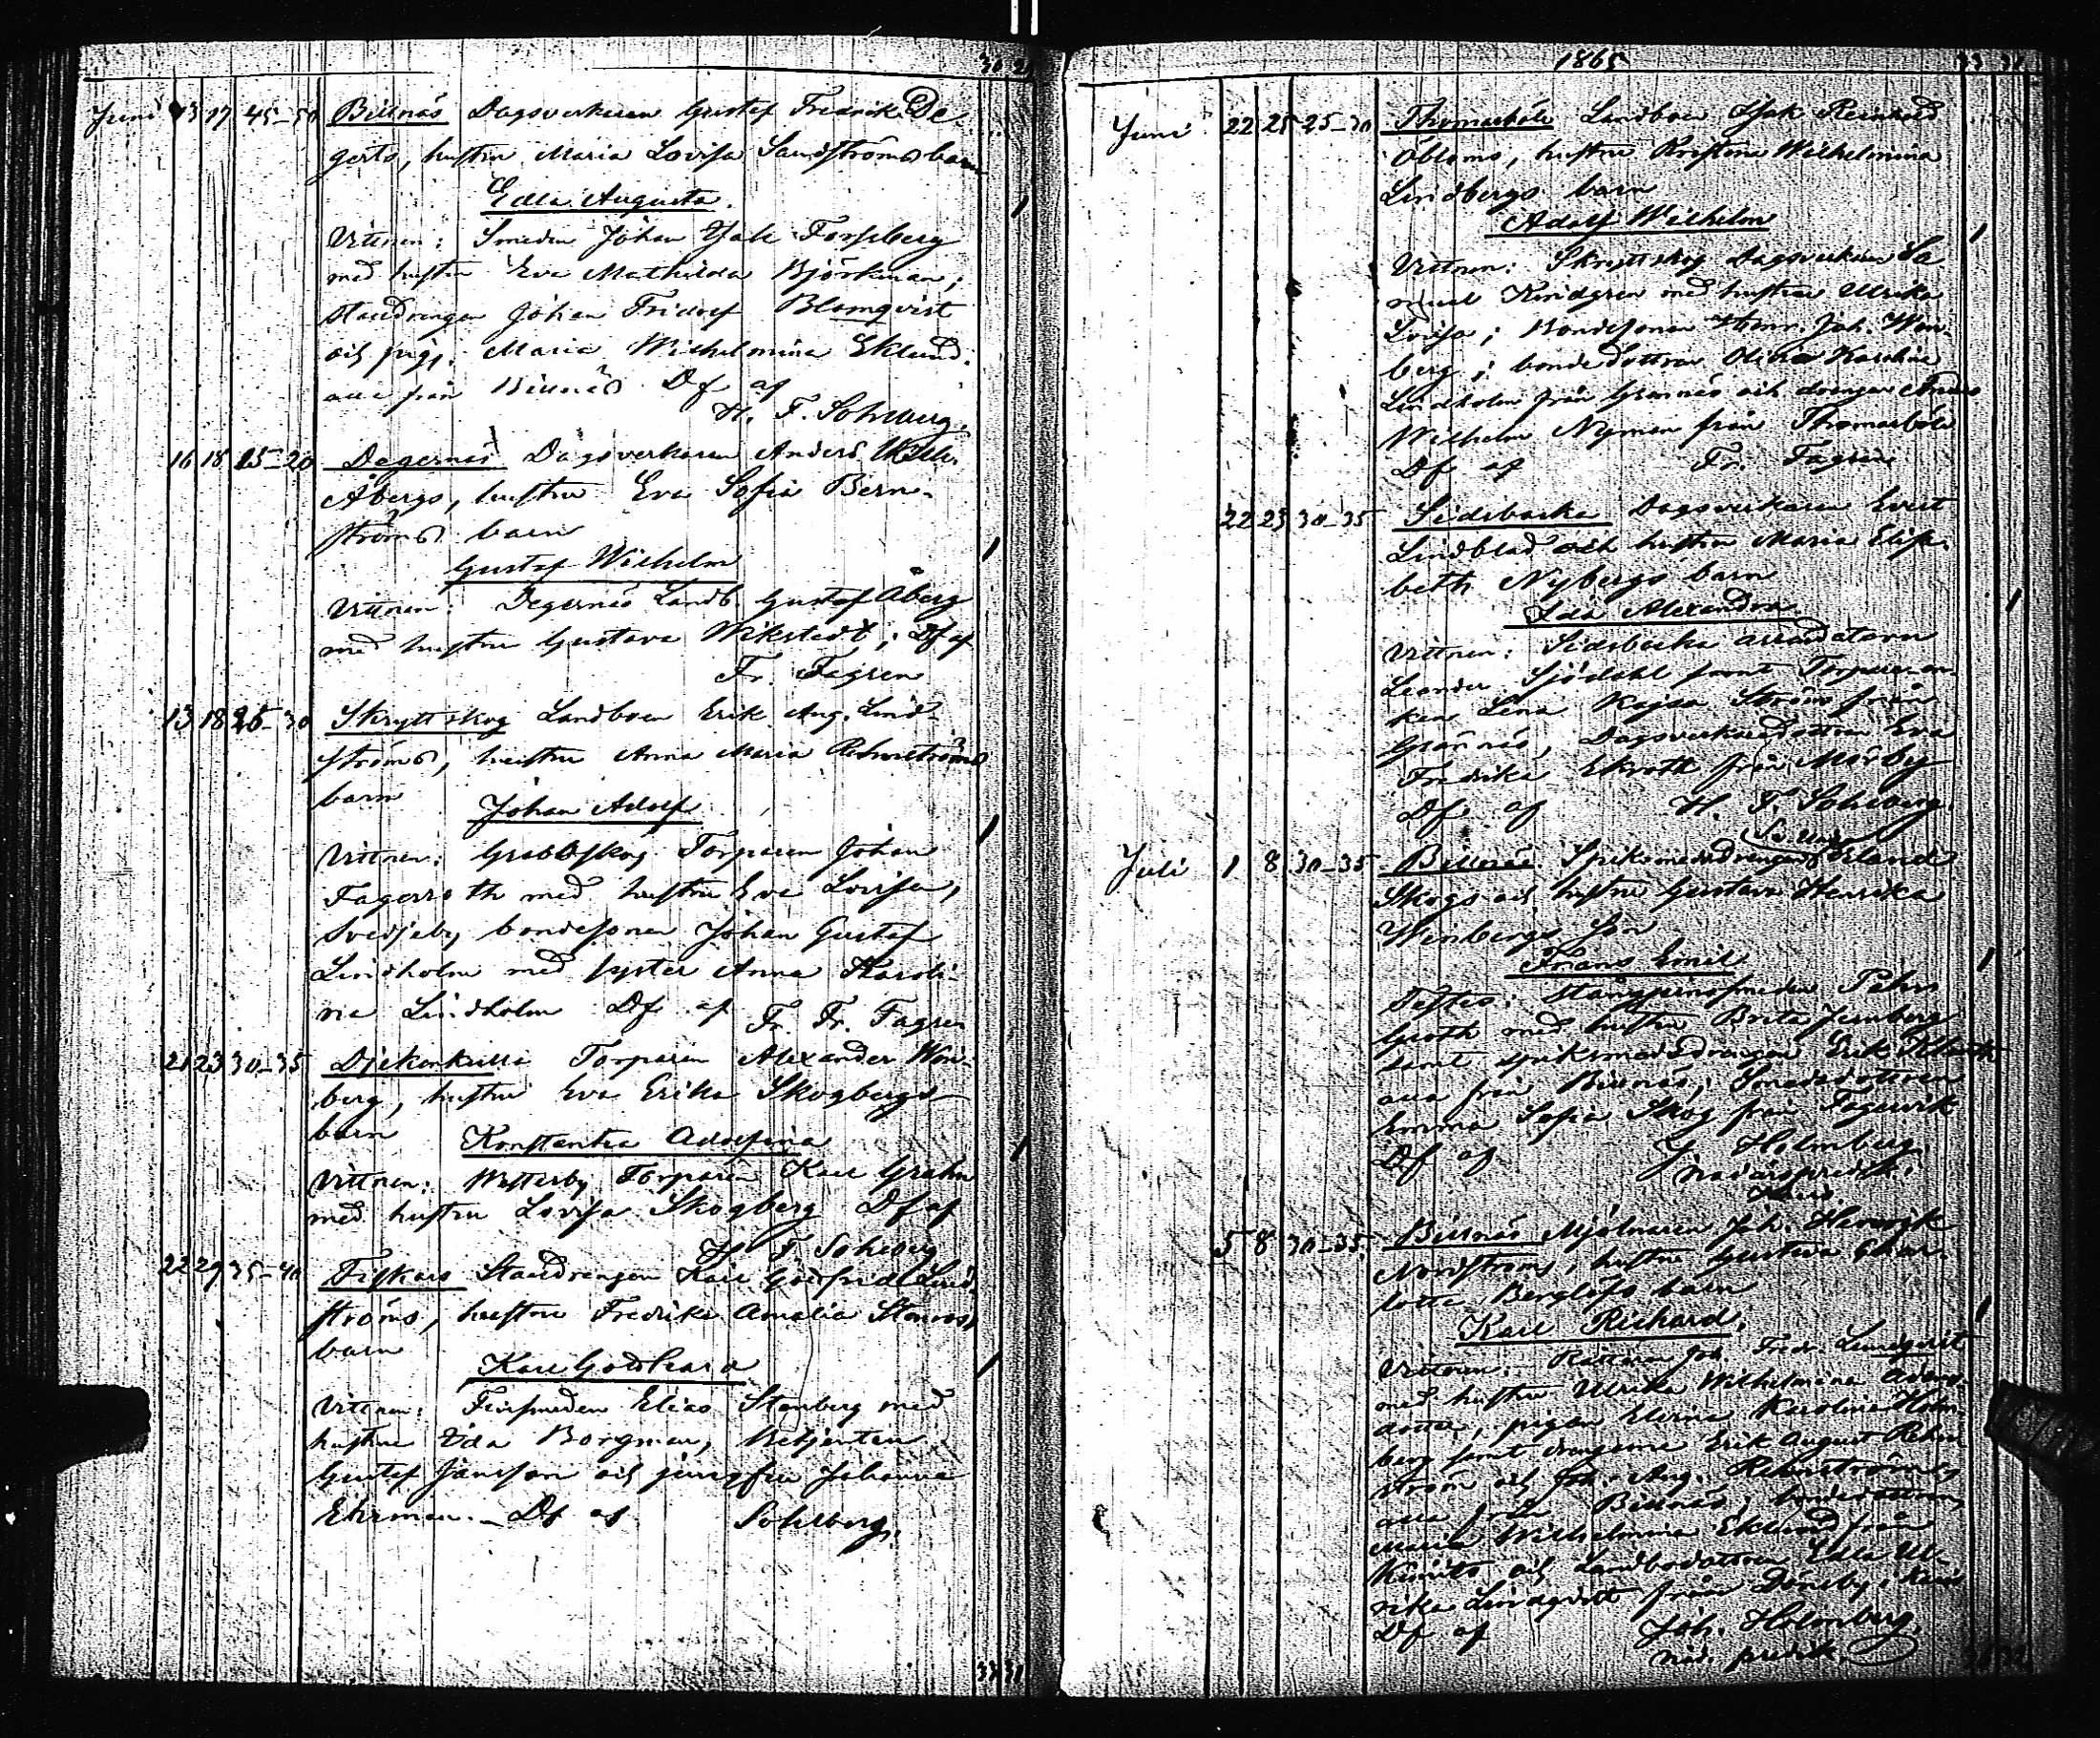 Juni 13 17 45-50 Billnäs Dagsverkaren Gustaf Fredrik De
gerts, hustru Maria Lovisa Sandströms barn
Edla Augusta.
Vittnen: Smeden Johan Isak Forsberg
med hustru Eva Mathilda Björkman;
Stalldrengen Johan Fridolf Blomqvist
och pig. Maria Wilhelmina Eklund.
alla från Billnäs Df af
H. F. Sohlberg.
16 18 15-20 Degernäs Dagsverkaren Anders Wilh.
Åbergs, hustru Eva Sofia Bern-
ströms barn
Gustaf Wilhelm
Vittnen: Degernäs Landb. Gustaf Åberg
med hustru Gustava Wikstedt; Df af
Fr. Fagren
13 18 25-30 Skryttskog Landboen Erik Aug. Lind-
ströms, hustru Anna Maria Rehnströms
barn
Johan Adolf
Vittnen: Grabbskog Torparen Johan
Fagerroth med hustru Eva Lovisa,
Svedjeby bondesonen Johan Gustaf
Lindholm med syster Anna Karoli-
na Lindholm Df af Fr. Fr. Fagren
21 23 30-35 Djekenkulla Torparen Alexander Wen-
berg, hustru Eva Erika Skogbergs
barn
Konstantia Adolfina
Vittnen: Westerby Torparen Karl Grahn
med hustru Lovisa Skogberg Df af
H. F. Sohlberg
22 29 35-40 Fiskars Stalldrengen Karl Gotfrid Lind-
ströms, hustru Fredrika Amalia Stenroos,
barn
Karl Gotthard
Vittnen: Finsmeden Elias Stenberg med
hustru Ida Borgman, Betjenten
Gustaf Jansson och jungfru Johanna
Ehrman. Df af Sohlberg.
33 31
1865
Juni 22 25 25-30 Thomasböle Landboen Isak Reinhold
Öbloms, hustru Kristina Wilhelmina
Lindbergs barn
Adolf Wilhelm
Vittnen: Skryttskog Dagsverkaren Sa-
muel Kindgren med hustru Ulrika
Lovisa; Bondesonen Henr. Joh. Wen-
berg; bondedottren Karolina
Lindholm från Grannäs och drengen
Wilhelm Nyman från Thomasböle
Df af Fr. Fagren
22 23 30-35 Sidsbacka Dagsverkaren Evert
Lindblad och hustru Maria Elisa-
beth Nybergs barn
Ida Alexandra
Vittnen: Sidsbacka arrendatorn
Leander Sjödahl samt Torpare en-
kan Lena Kajsa Ström från
Grännäs, Dagsverkaredottren Eva
Fredrika Ekroth från Mörby
Df af H. F. Sohlberg.
Juli 1 8 30-35 Billnäs Spiksmedsdrengen Erland
Skogs och hustru Gustava Henrika
Wenbergs son
Frans Emil
Testes: Stångjernssmeden Pehr
Groth med hustru Brita Jernberg
samt spiksmedsdrengen Erik
alla från Billnäs; Smedsdottren
Emma Sofia Skog från Fagervik
Df af J. Holmberg
nådårspredik.
5 8 30-35 Billnäs Mjölnaren Joh. Henrik
Nordströms, hustru Gustava Char-
lotta Berglöfs barn
Karl Richard,
Vittnen: Rättaren Joh. Fredr. Lindqvist
med hustru Ulrika Wilhelmina Adams-
dotter, pigan Elvira Karolina Holm-
berg samt drengarne Erik August Rehn-
ström och Joh. Aug. Rehnström,
alla från Billnäs; bondedottren
Maria Wilhelmina Eklund från
Kimito och Landbodottren Edla Ul-
rika Lindqvist från Döneby i
Df af Joh. Holmberg,
nåd. predik.